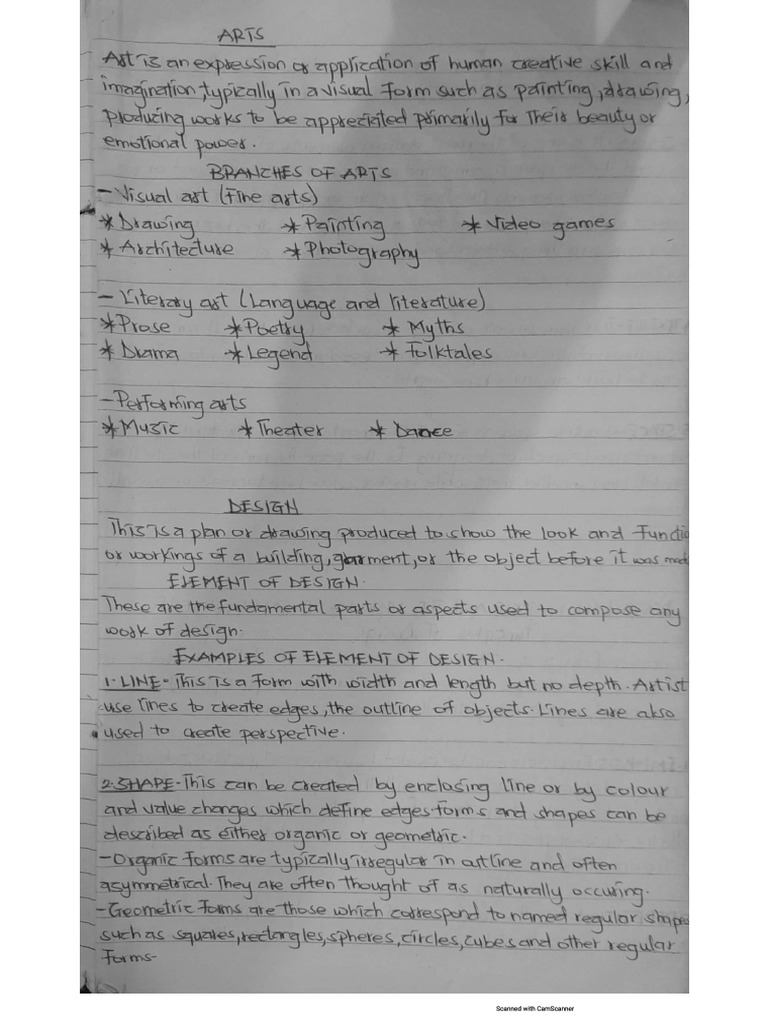 ARTS
Art is an expression or application of human creative skill and
imagination, typically in a visual form such as painting, drawing,
producing works to be appreciated primarily for their beauty or
emotional power.
BRANCHES OF ARTS
- Visual art (Fine arts)
* Drawing * Painting * Video games
* Architecture * Photography
- Literary art (Language and literature)
* Prose * Poetry * Myths
* Drama * Legend * Folktales
- Performing arts
* Music * Theater * Dance
DESIGN
This is a plan or drawing produced to show the look and functio
or workings of a building, garment, or the object before it was made
ELEMENT OF DESIGN.
These are the fundamental parts or aspects used to compose any
work of design.
EXAMPLES OF ELEMENT OF DESIGN.
1. LINE - This is a form with width and length but no depth. Artist
use lines to create edges, the outline of objects. Lines are also
used to create perspective.
2. SHAPE - This can be created by enclosing line or by colour
and value changes which define edges. forms and shapes can be
described as either organic or geometric.
- Organic forms are typically irregular in outline and often
asymmetrical. They are often thought of as naturally occuring.
- Geometric forms are those which correspond to named regular shapes
such as squares, rectangles, spheres, circles, cubes and other regular
forms-
Scanned with CamScanner